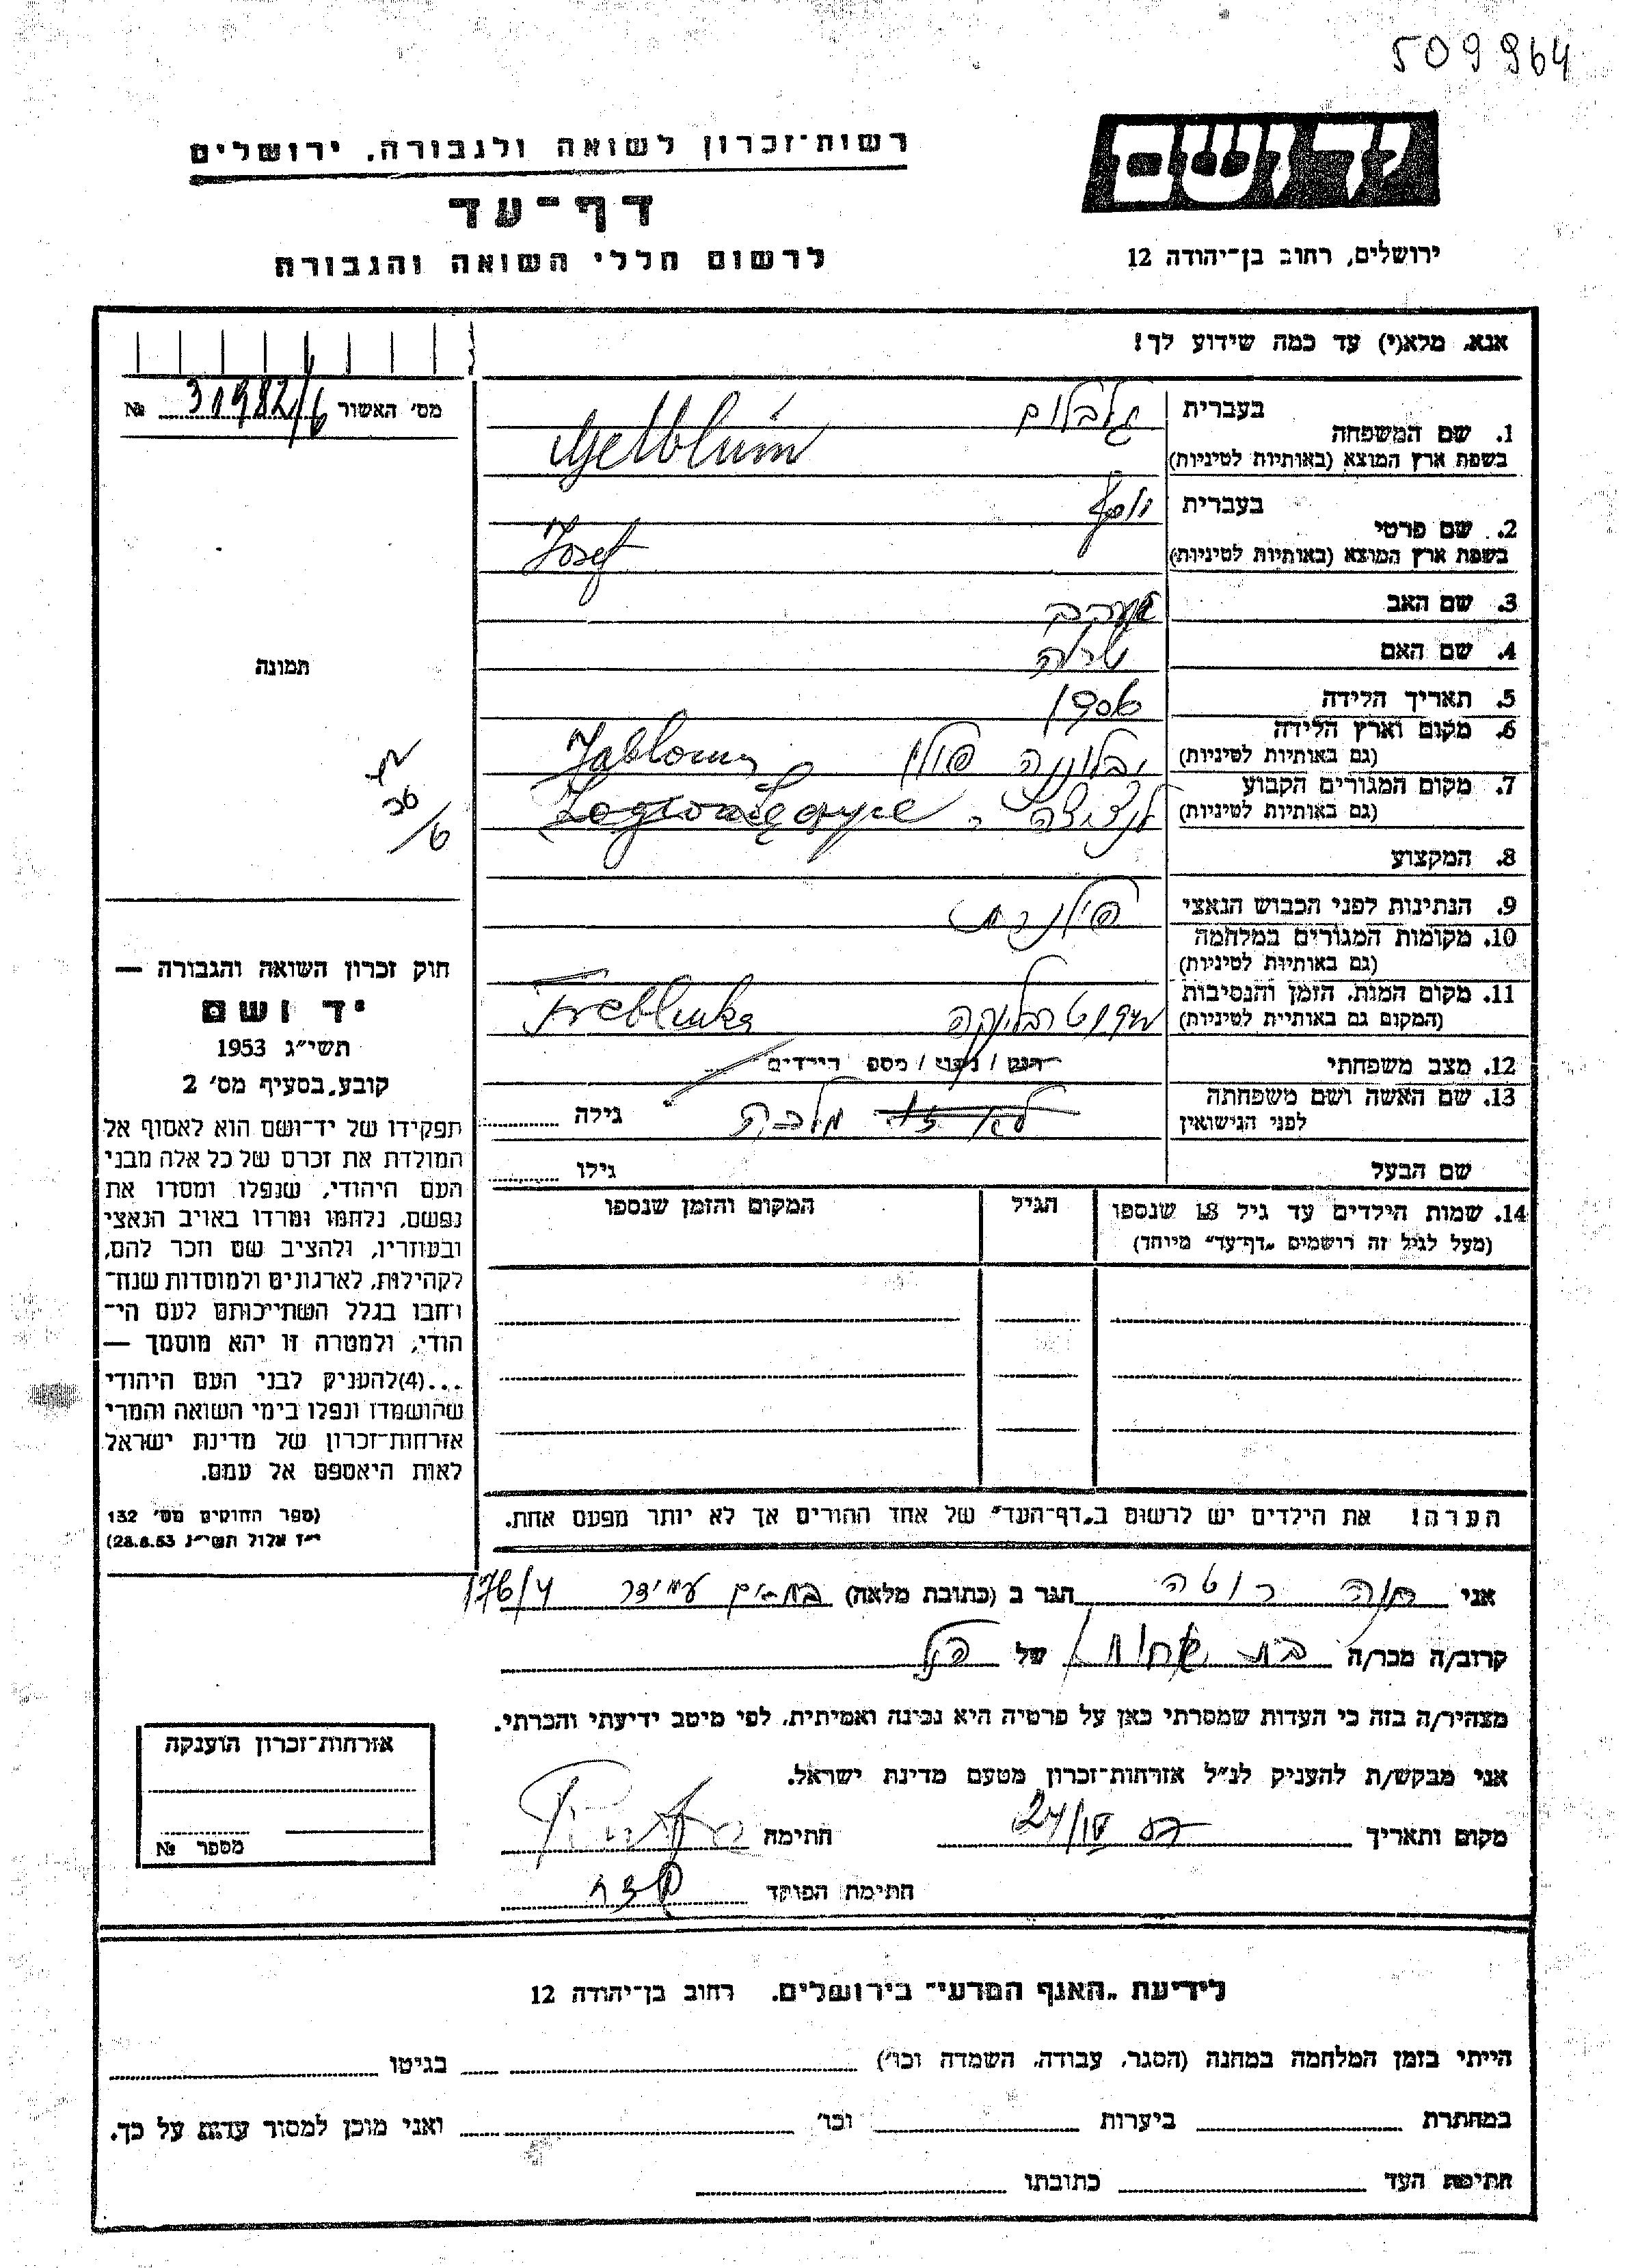 509964
ידושם
רשות־זכרון לשואה ולגבורה. ירושלים
דף־עד
לרשום חללי השואה והגבורה
ירושלים, רחוב בן־יהודה 12
אנא. מלא(י) עד כמה שידוע לך!
מס׳ האשור 31982/6 №
1. שם המשפחה
בעברית גלבלום
בשפת ארץ המוצא (באותיות לטיניות) Gelblum
2. שם פרטי
בעברית יוסף
בשפת ארץ המוצא (באותיות לטיניות) Josef
3. שם האב יעקב
4. שם האם
5. תאריך הלידה
6. מקום וארץ הלידה
(גם באותיות לטיניות) יבלונה פולין
7. מקום המגורים הקבוע
(גם באותיות לטיניות)
8. המקצוע
9. הנתינות לפני הכבוש הנאצי פולנית
10. מקומות המגורים במלחמה
(גם באותיות לטיניות)
11. מקום המות. הזמן והנסיבות
(המקום גם באותיית לטיניות) טרבלינקה Treblinka
12. מצב משפחתי רוק / נשוי / מספר הילדים
13. שם האשה ושם משפחתה
לפני הנישואין מלכה גילה
שם הבעל גילו
14. שמות הילדים עד גיל 18 שנספו
(מעל לגיל זה רושמים „דף־עד״ מיוחד)
הגיל
המקום והזמן שנספו
הערה! את הילדים יש לרשום ב„דף־העד״ של אחד ההורים אך לא יותר מפעם אחת.
תמונה
36
6
חוק זכרון השואה והגבורה —
יד ושם
תשי״ג 1953
קובע, בסעיף מס׳ 2
תפקידו של יד־ושם הוא לאסוף אל
המולדת את זכרם של כל אלה מבני
העם היהודי, שנפלו ומסרו את
נפשם, נלחמו ומרדו באויב הנאצי
ובעוזריו, ולהציב שם וזכר להם,
לקהילות, לארגונים ולמוסדות שנח־
רחבו בגלל השתייכותם לעם הי־
הודי, ולמטרה זו יהא מוסמך —
...(4)להעניק לבני העם היהודי
שהושמדו ונפלו בימי השואה והמרי
אזרחות־זכרון של מדינת ישראל
לאות היאספם אל עמם.
(ספר החוקים מס׳ 132
י״ז אלול תשי״ג 28.8.53)
אני חנה רוטה הגר ב (כתובת מלאה) בת־ים עמידר 176/4
קרוב/ה מכר/ה בת אחות של הנ״ל
מצהיר/ה בזה כי העדות שמסרתי כאן על פרטיה היא נכונה ואמיתית. לפי מיטב ידיעתי והכרתי.
אני מבקש/ת להעניק לנ״ל אזרחות־זכרון מטעם מדינת ישראל.
מקום ותאריך חתימה
חתימת הפוקד
אזרחות־זכרון הוענקה
מספר №
לידיעת „האגף המדעי״ בירושלים. רחוב בן־יהודה 12
הייתי בזמן המלחמה במחנה (הסגר. עבודה. השמדה וכו׳) בגיטו
במחתרת ביערות וכו׳ ואני מוכן למסור עדות על כך.
חתימת העד כתובתו